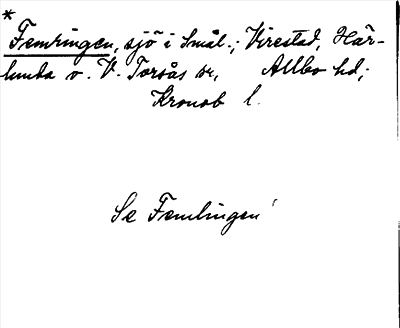 *
Femringen, sjö i Smål.; Virestad, Här-
lunda o. V. Torsås sr, Allbo hd;
Kronob l.
Se Femlingen